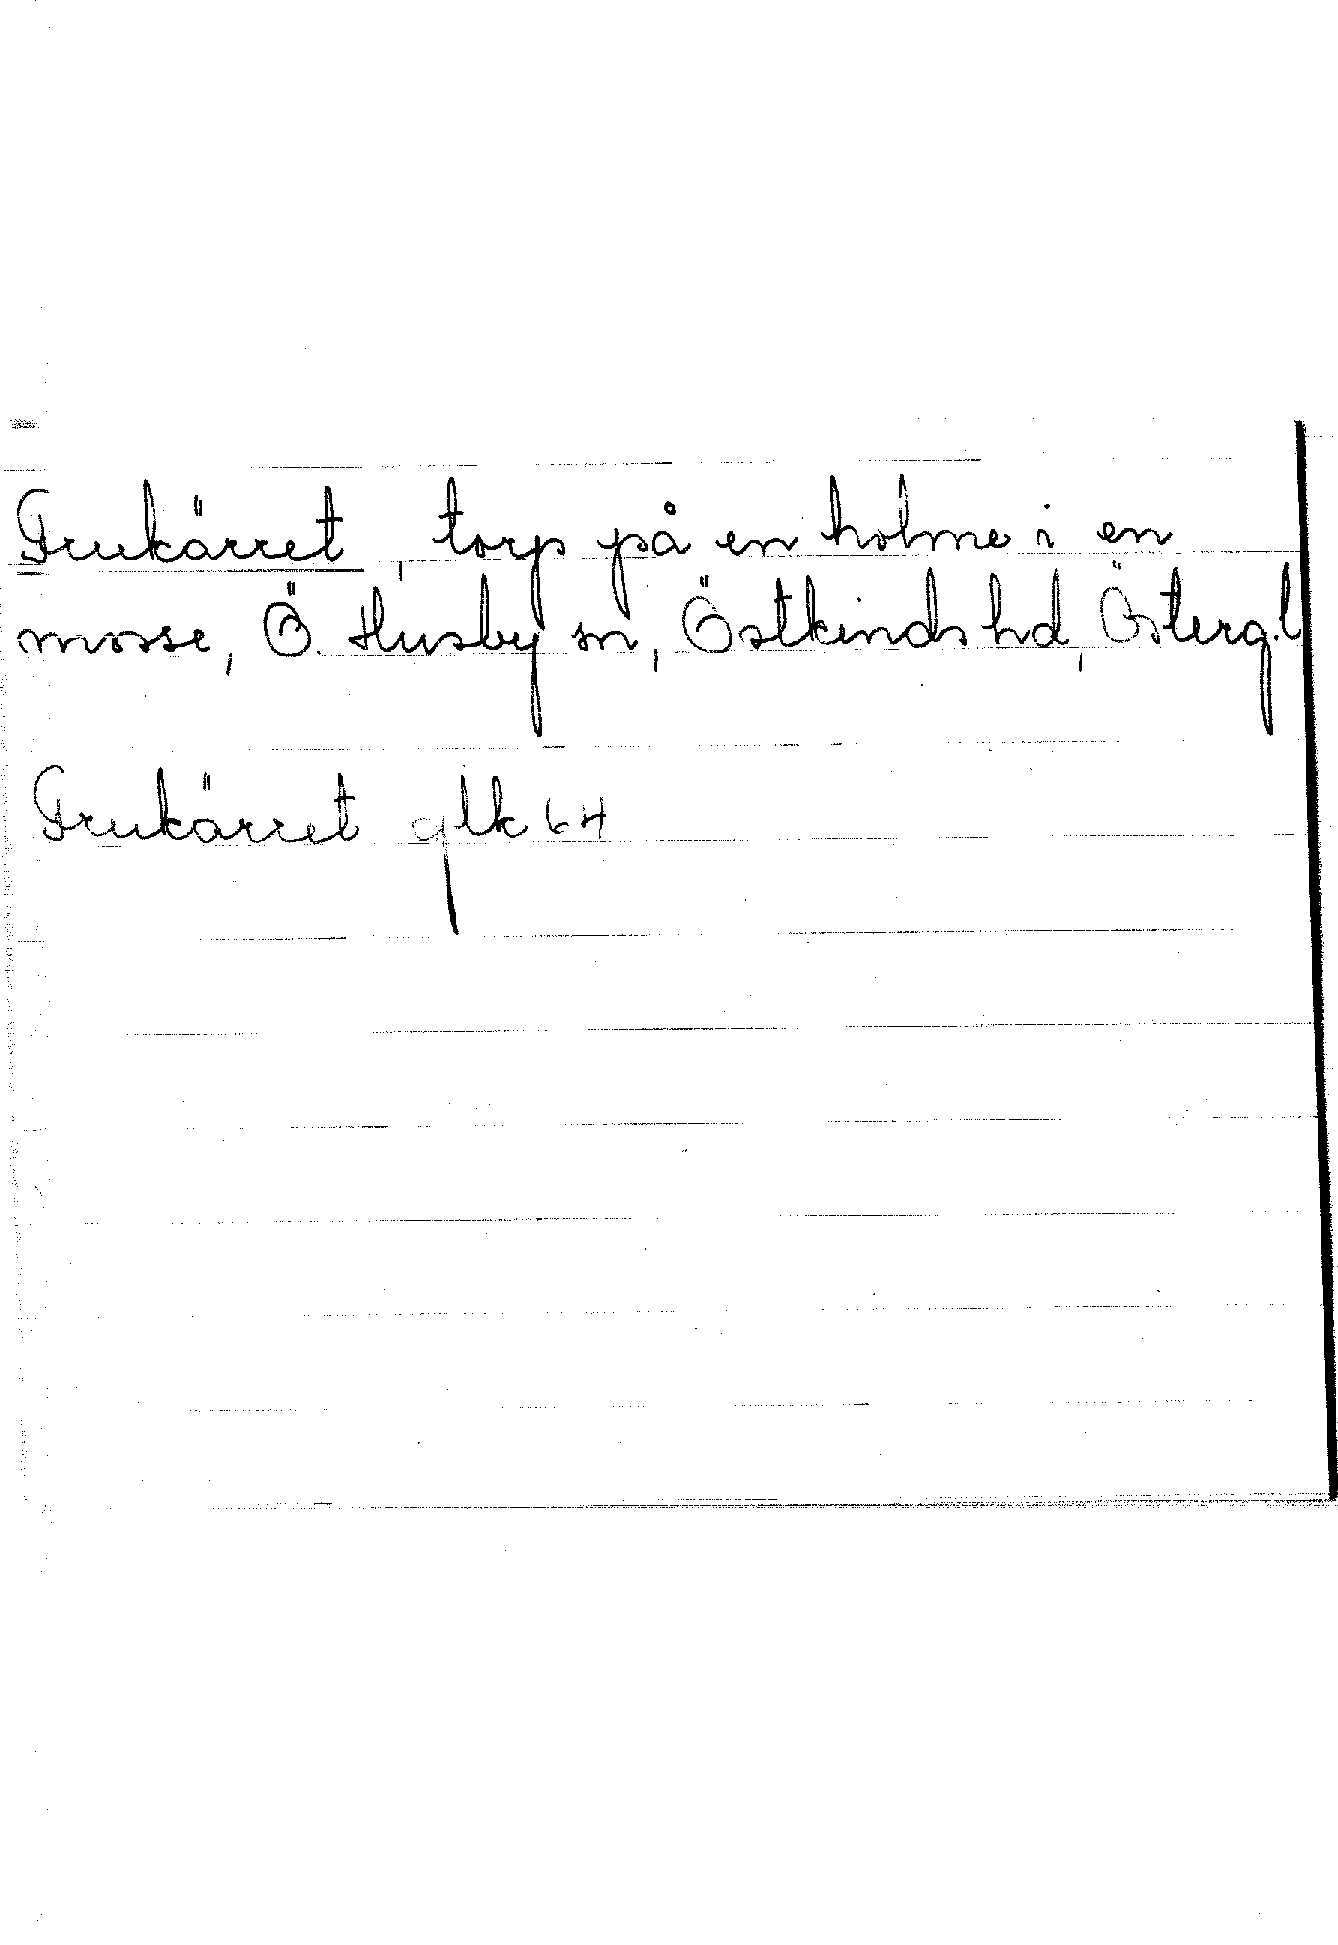 Grukärret, torp på en holme i en
mosse, Ö. Husby sn, Östkinds hd, Österg.l
Grukärret glk 64